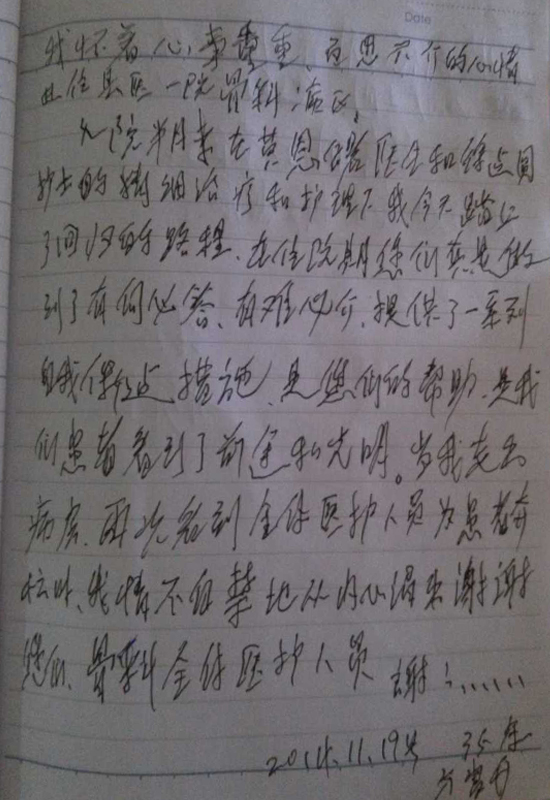 Date
我怀着心事重重、百思不介的心情
住县医一院骨科病区。
入院半月来在黄恩医生和钟点圆
护士的精细治疗和护理下我今天踏上
了回归的路程、在住院期您们真是做
到了有问必答、有难必介、提供了一系列
自我保健措施、是您们的帮助、是我
们患者看到了前途和光明。当我走出
病房、再次看到全体医护人员为患者奔
忙时、我情不自禁地从内心深来谢谢
您们、骨科全体医护人员 谢!......
2014.11.19号 35床